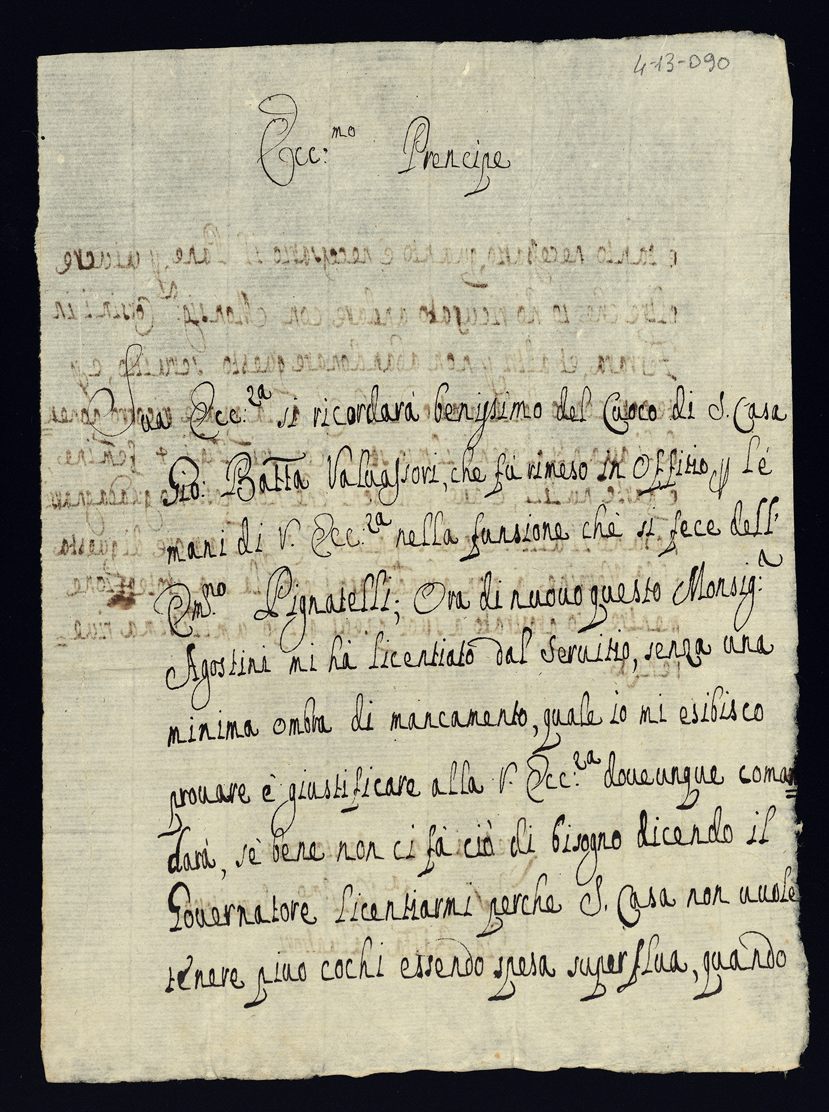 4-13-090
Ecc:mo Prencipe
Sua Ecc:za si ricordarà benissimo del Cuoco di S. Casa
Gio: Batta Valuassori, che fù rimeso in Offitio p le
mani di V. Ecc:za nella funsione che si fece dell'
Em:no Pignatelli; Ora di nuouo questo Monsig:r
Agostini mi hà licentiato dal Seruitio, senza una
minima ombra di mancamento, quale io mi esibisco
prouare è giustificare alla V. Ecc:za doueunque coman=
darà, sè bene non ci fà ciò di bisogno dicendo il
Gouernatore licentiarmi perche S. Casa non uuole
tenere piuo cochi essendo spesa superflua, quando